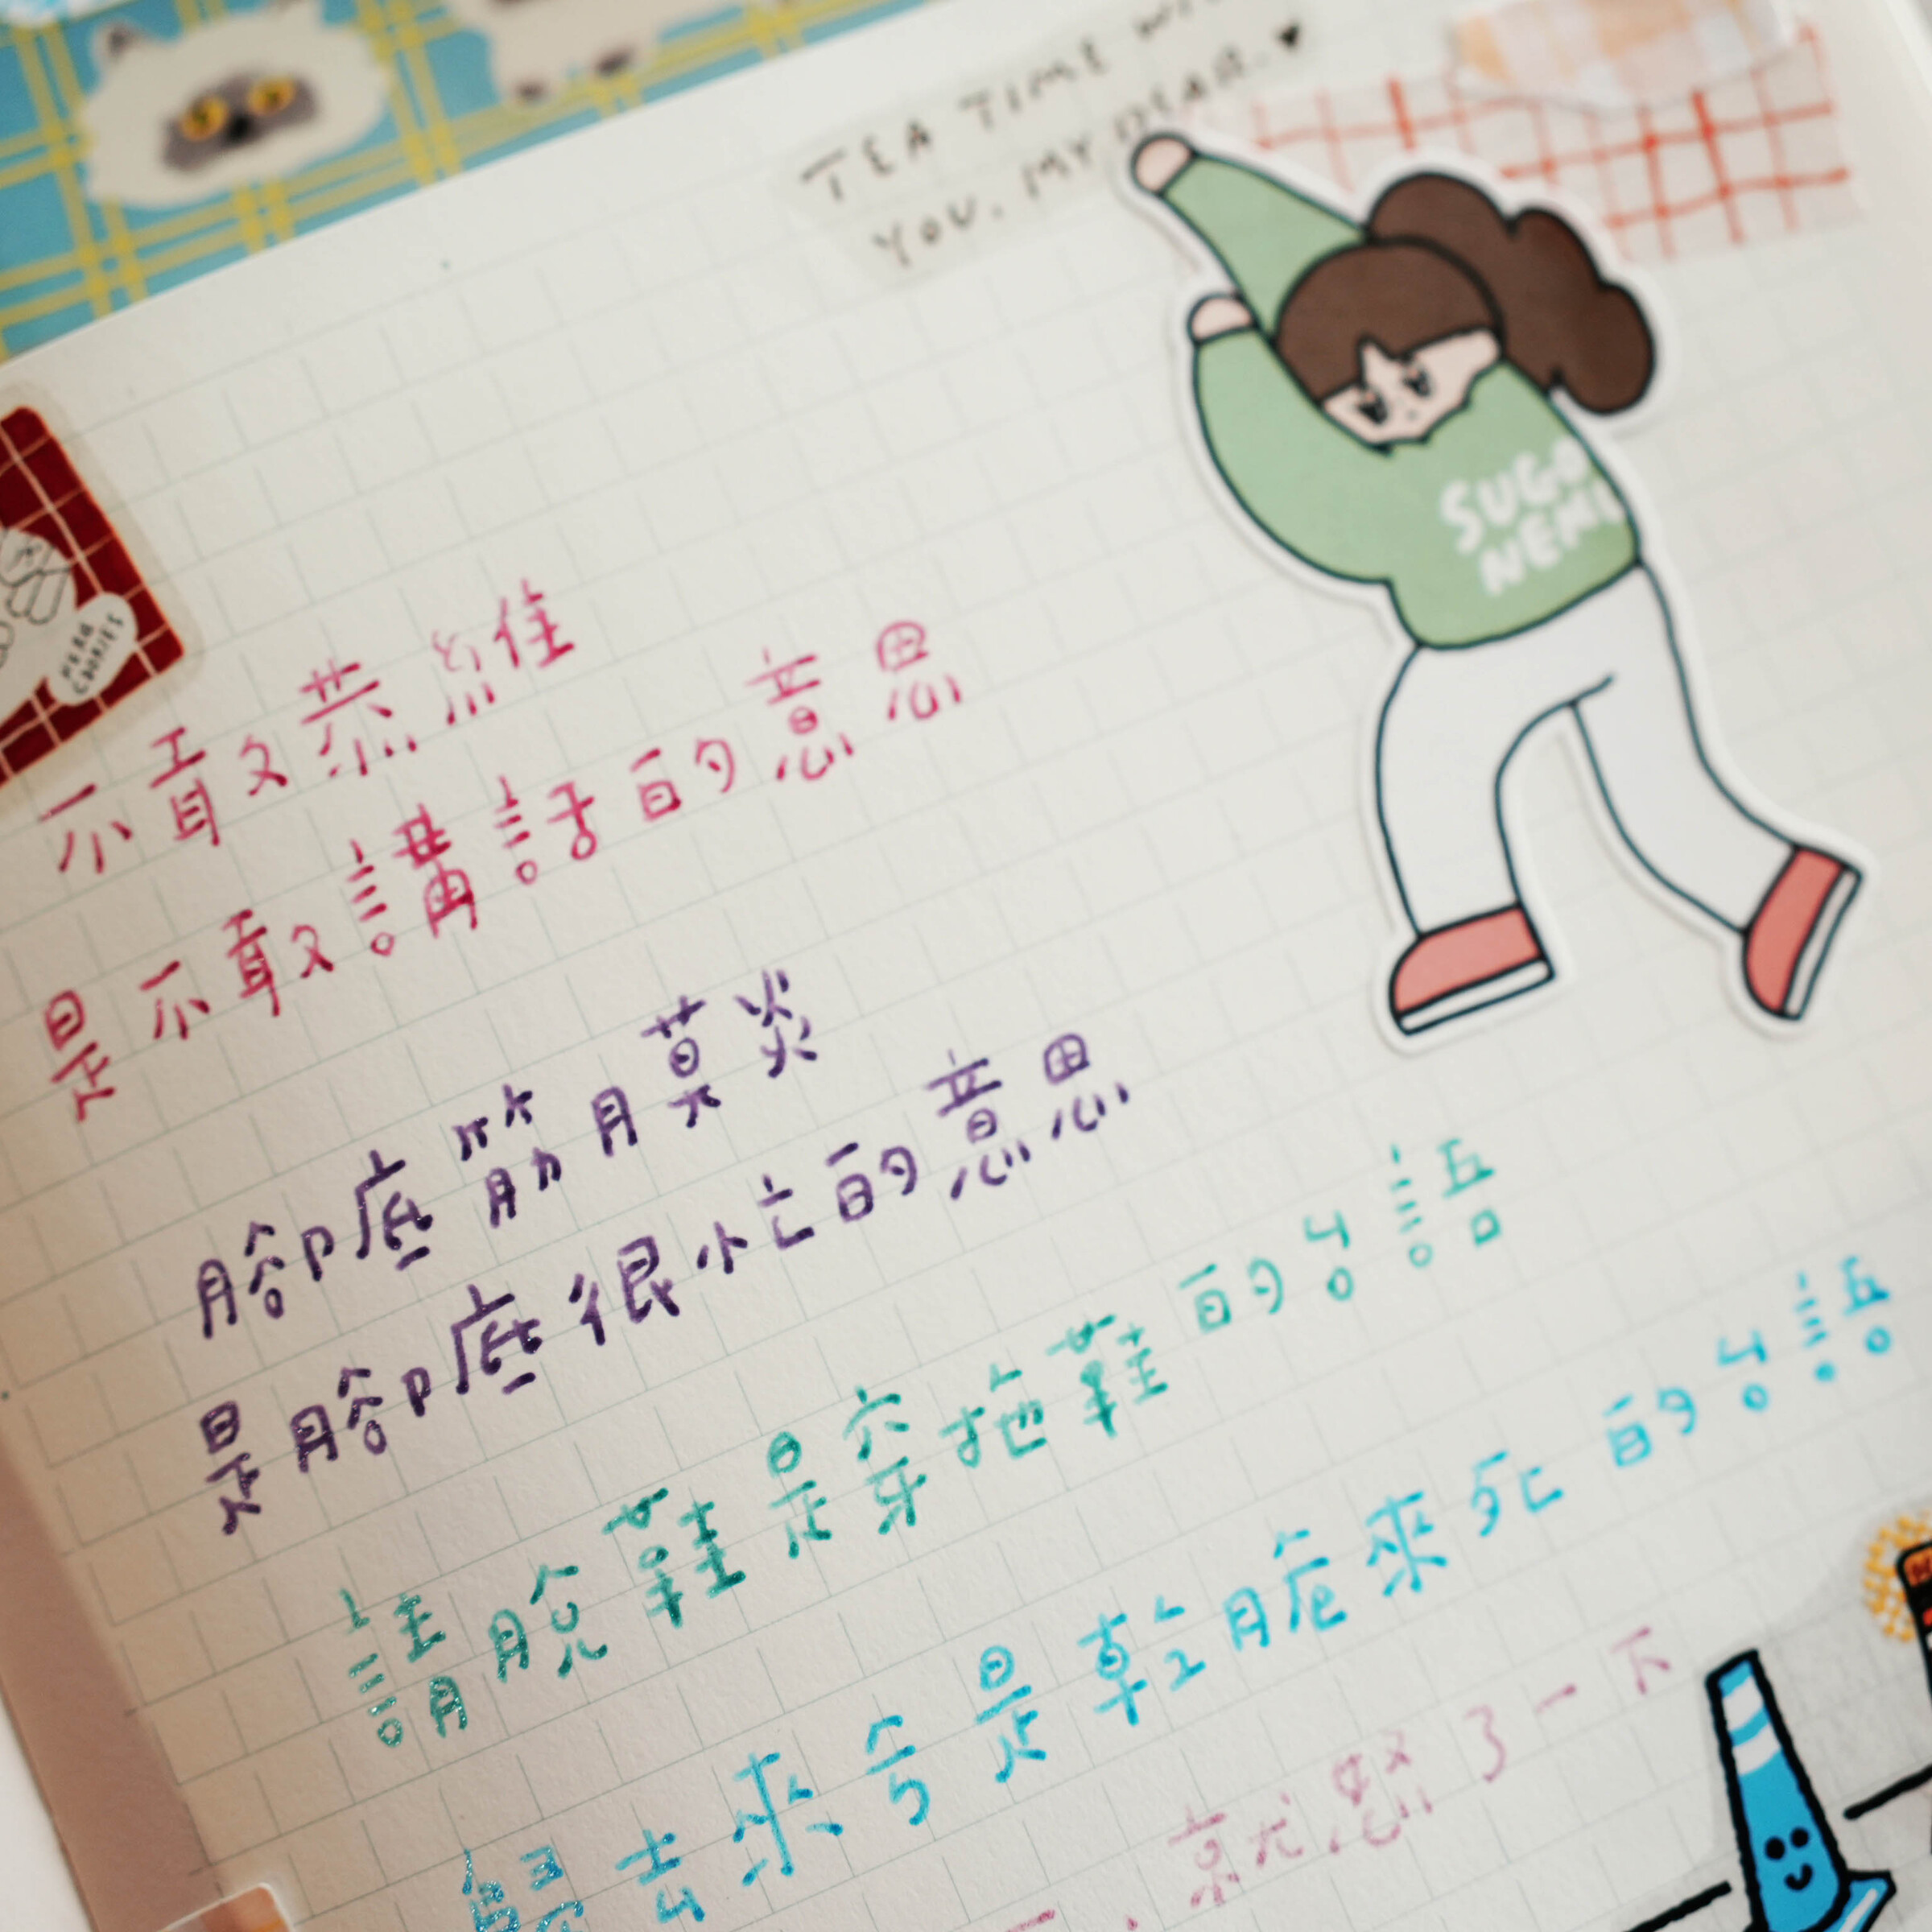 TEA TIME
YOU. MY DEAR.♥
SUGO
NEMU
HERE
COOKIES
不敢恭維
是不敢講話的意思
腳底筋膜炎
是腳底很忙的意思
請脫鞋是穿拖鞋的台語
歸去來兮是乾脆來死的台語
就怒了一下